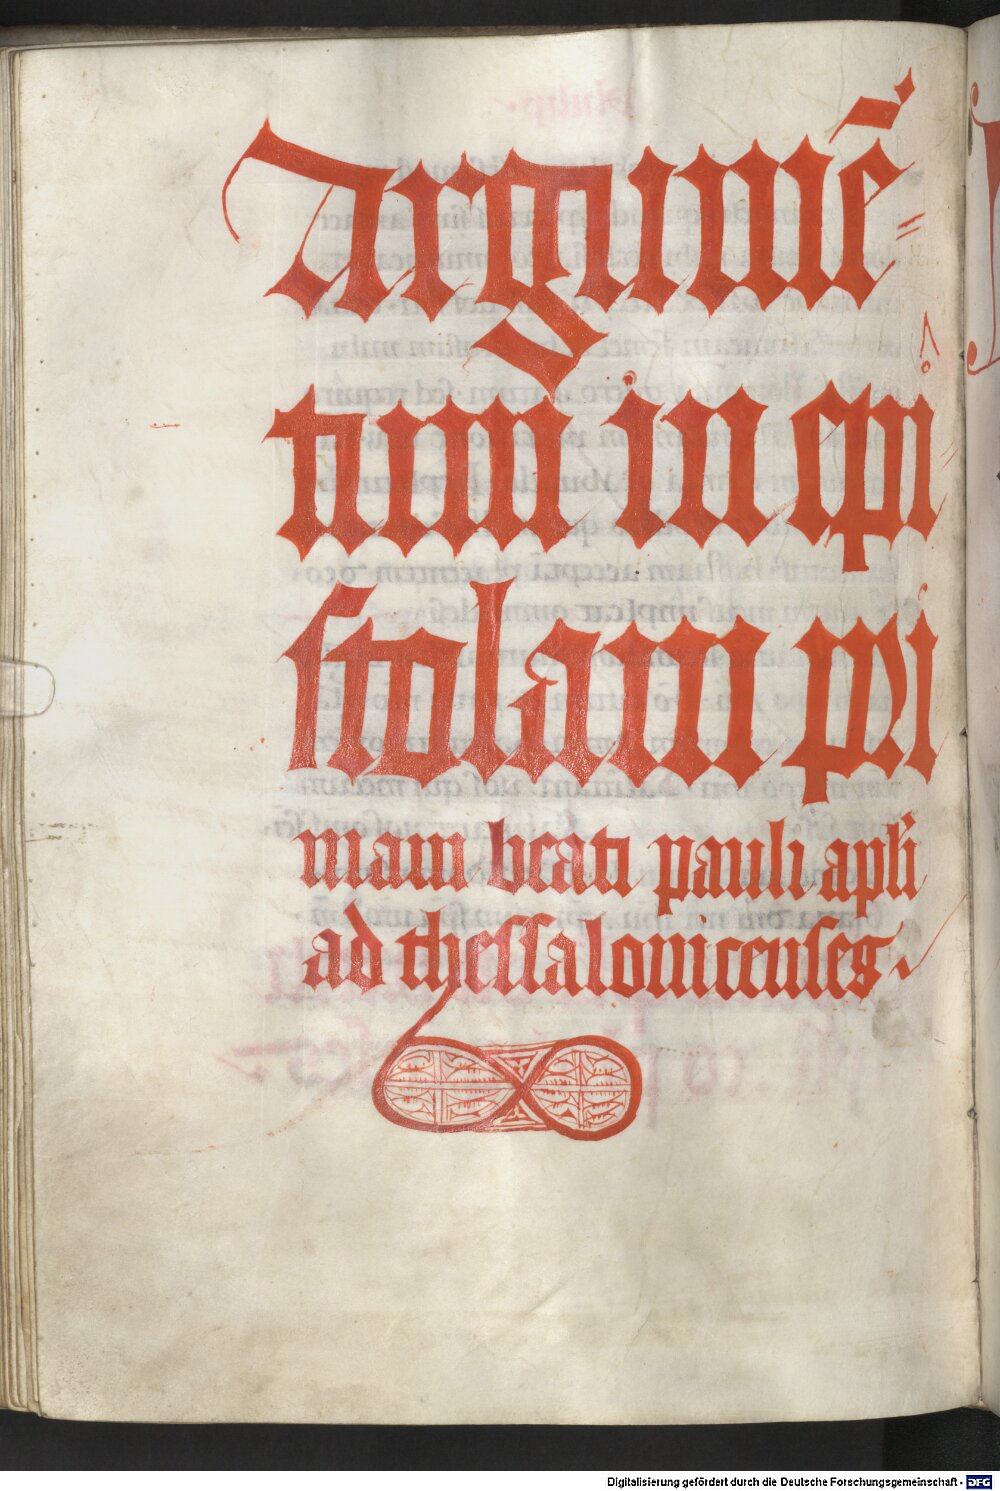 Argumē=
tum in epi
stolam pri
mam beati pauli apľi
ad thessalonicenses
Digitalisierung gefördert durch die Deutsche Forschungsgemeinschaft - DFG